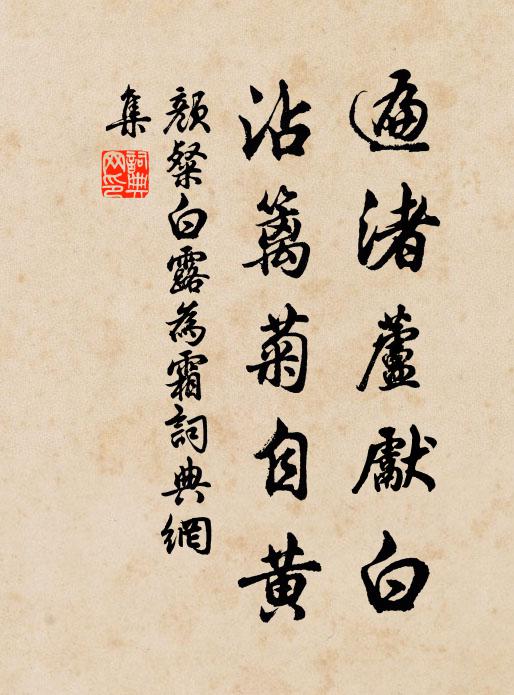 遍渚蘆獻白
沾籬菊自黃
顏粲白露為霜詞典網
集
詞典
网印